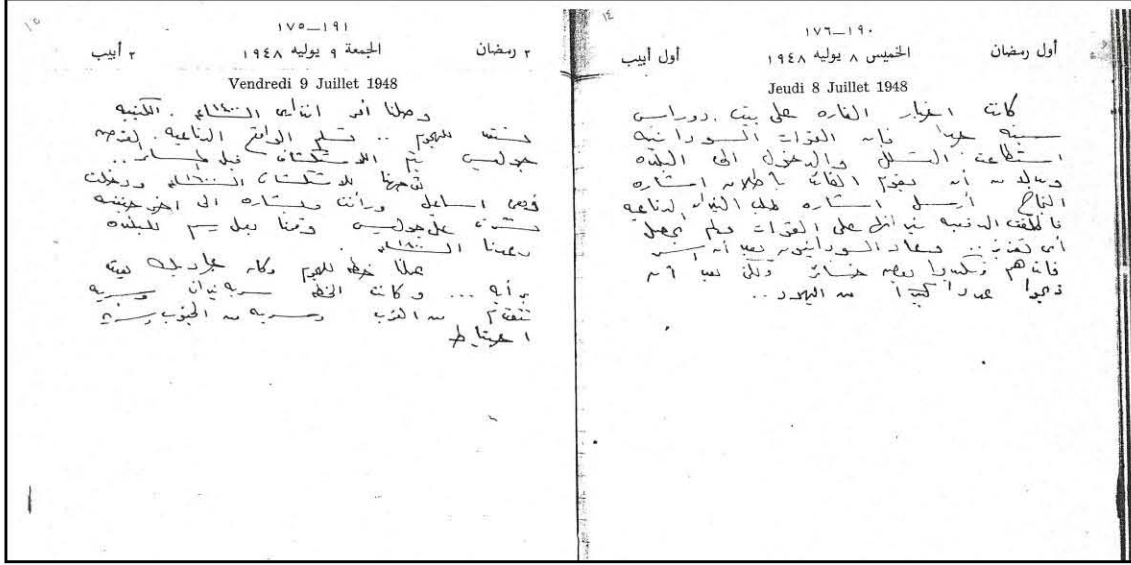 ١٤
١٧٦—١٩٠
أول رمضان الخميس ٨ يوليه ١٩٤٨ أول أبيب
Jeudi 8 Juillet 1948
كانت اخبار الغاره على بيت دوراس
سيئه جدا فإن القوات السودانيه
استطاعت التسلل والدخول الى البلده
وبدلا من أن يقوم القائد باطلاق اشاره
النجاح أرسل اشاره طلب النيران الدفاعيه
فاطلقت المدفعيه نيرانها على القوات ولم يحصل
أى تعزيز .. وعاد السودانيون بعد أن أسر
قائدهم وتكبدوا بعض خسائر ولكن بعد أن
ذبحوا عددا كبيرا من اليهود ..
١٥
١٧٥—١٩١
٢ رمضان الجمعة ٩ يوليه ١٩٤٨ ٢ أبيب
Vendredi 9 Juillet 1948
وصلنا أمر انذارى الساعه ١٤٠٠ . الكتيبه
تستعد للهجوم .. تسلم المواقع الدفاعيه
جوليس يتم الاستكشاف قبل المساء ..
توجهنا للاستكشاف الساعه ١٦٠٠ ودخلت
اسماعيل ورأفت وبشاره الى اخر جنينه
تشرف على جوليس وقمنا بعمل رسم للبلده
وعدنا الساعه ١٨٠٠ .
عملنا خطه للهجوم وكان بك
برأيه ... وكانت الخطه سريه نيران وسريه
تتقدم من الغرب وسريه من الجنوب وسريه
احتياط